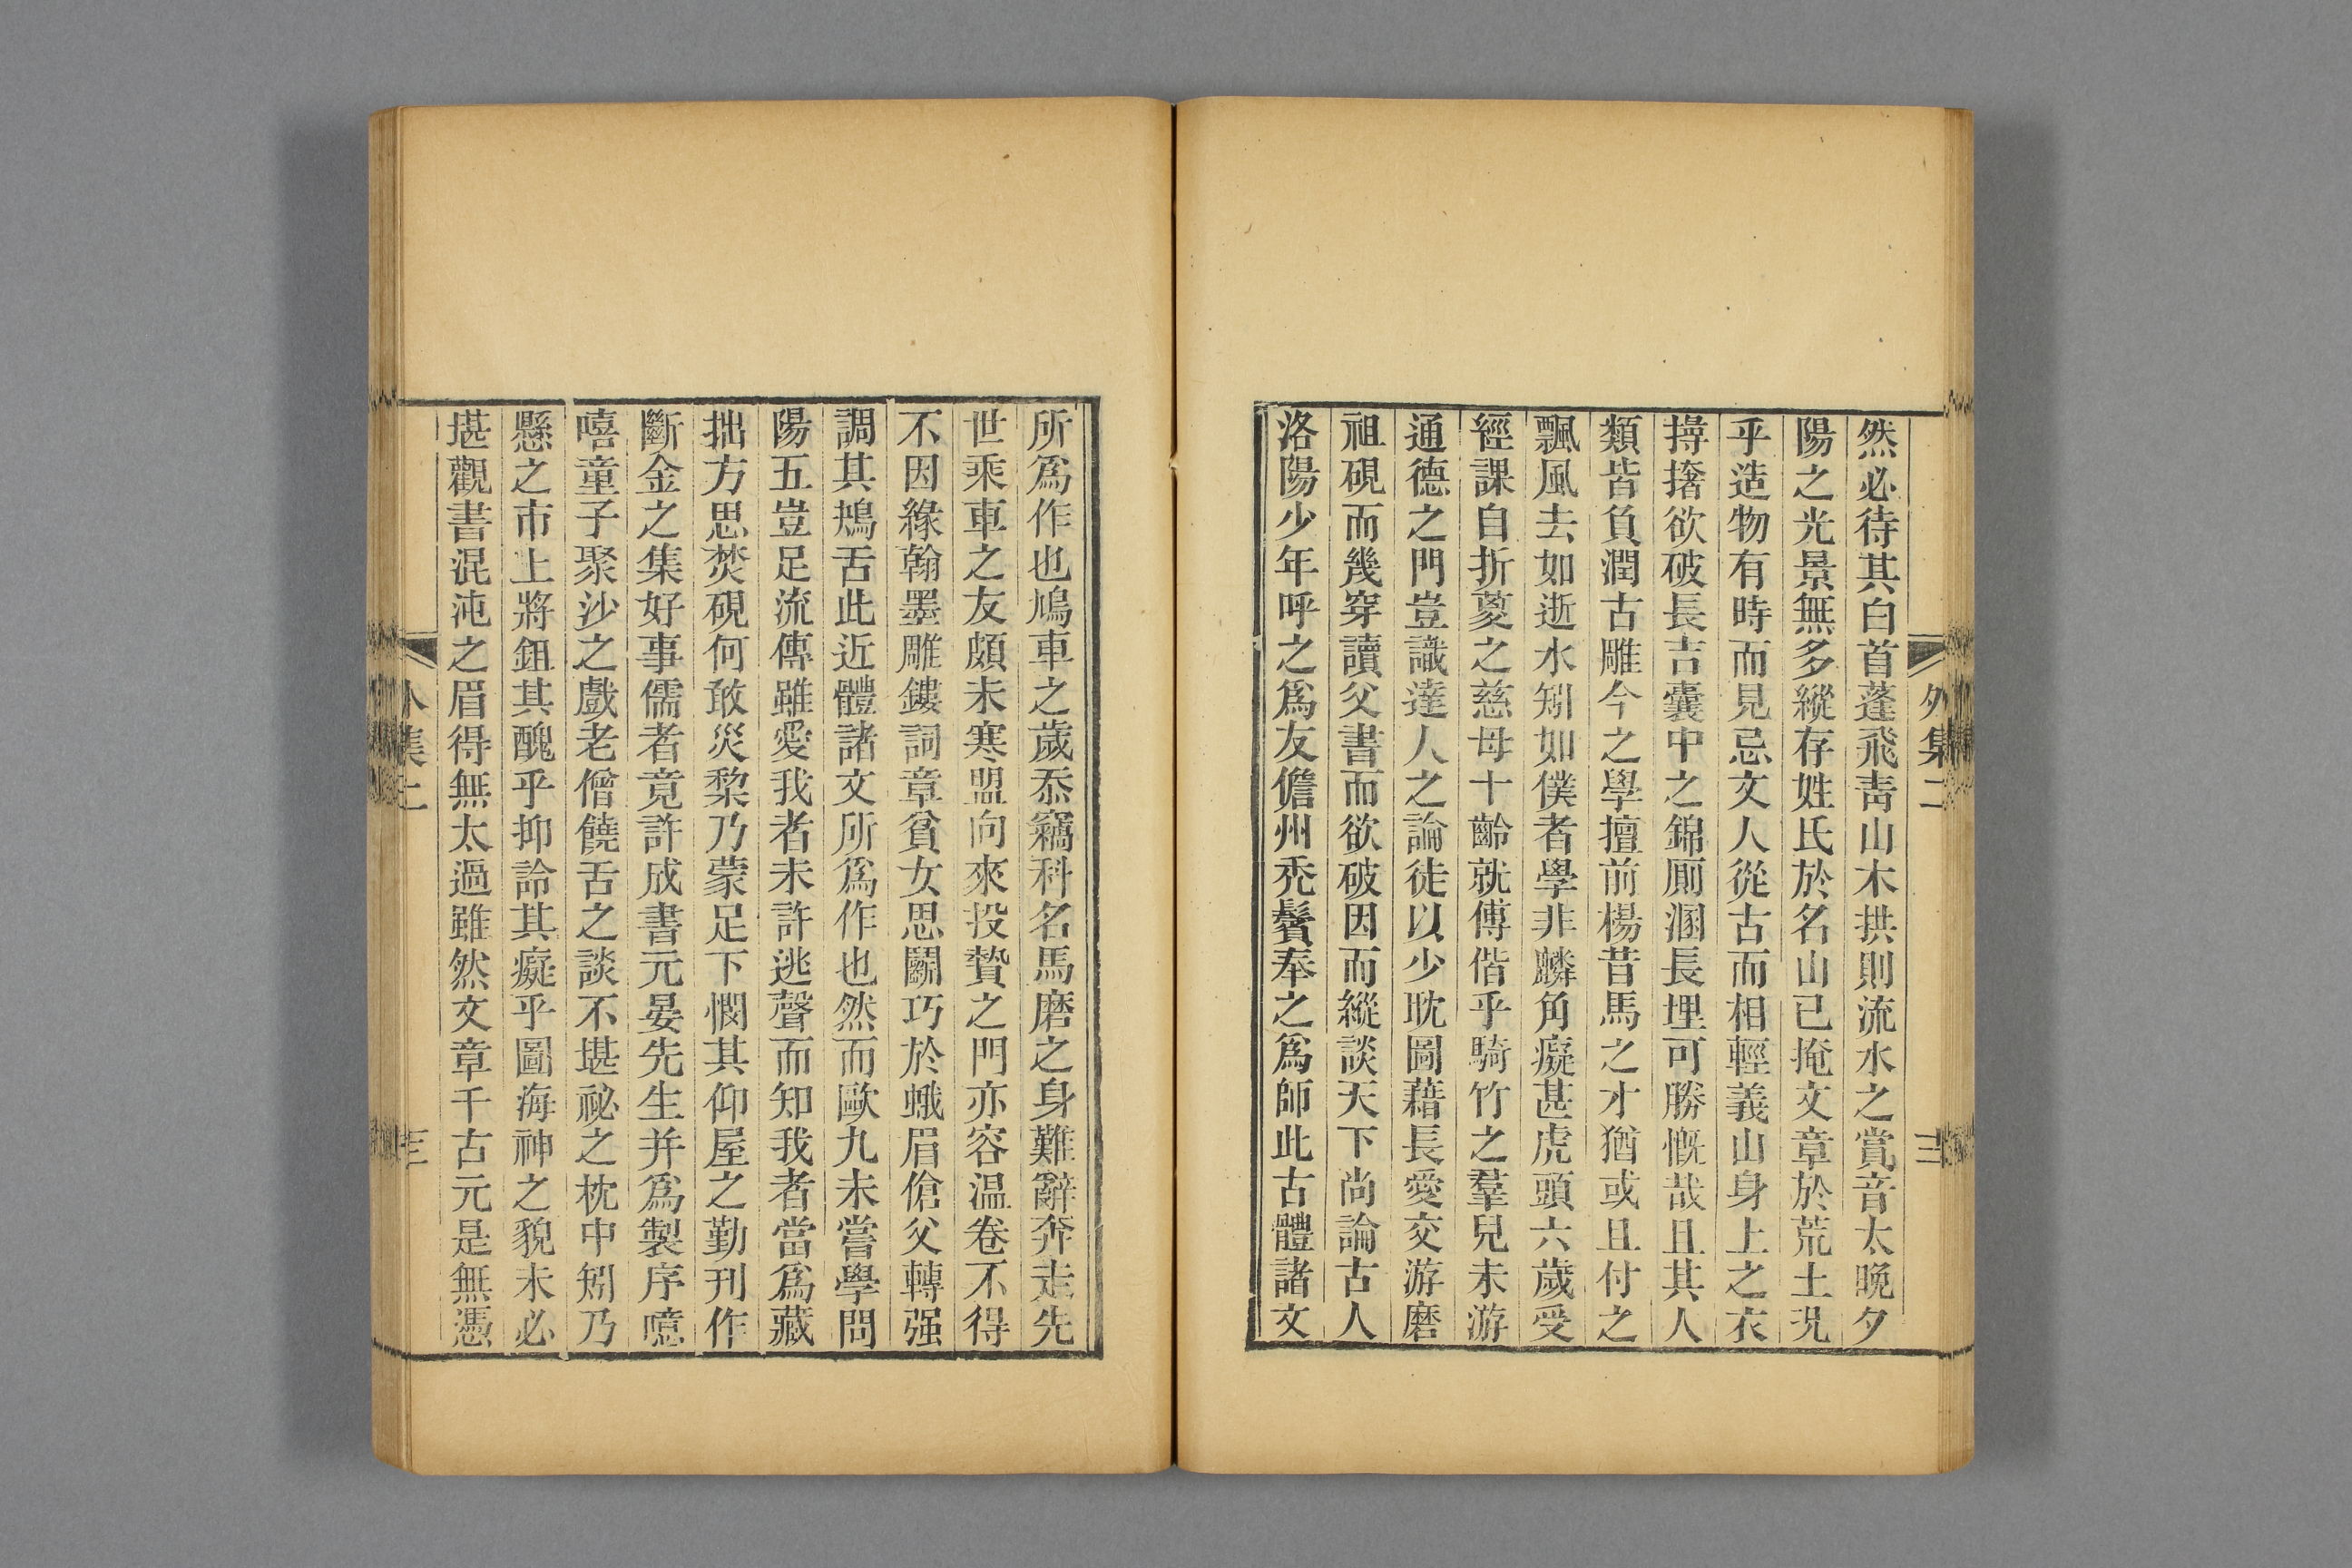 然必待其白首蓬飛靑山木拱則流水之賞音太晚夕
陽之光景無多縱存姓氏於名山已掩文章於荒土況
乎造物有時而見忌文人從古而相輕義山身上之衣
撏撦欲破長吉囊中之錦厠溷長埋可勝慨哉且其人
類皆負潤古雕今之學擅前楊昔馬之才猶或且付之
飄風去如逝水矧如僕者學非麟角癡甚虎頭六歲受
經課自折葼之慈母十齡就傅偕乎騎竹之羣兒未游
通德之門豈識達人之論徒以少耽圖藉長愛交游磨
祖硯而幾穿讀父書而欲破因而縱談天下尚論古人
洛陽少年呼之爲友儋州秃鬢奉之爲師此古體諸文
外集二
所爲作也鳩車之歲忝竊科名馬磨之身難辭奔走先
世乘車之友頗未寒盟向來投贄之門亦容温卷不得
不因緣翰墨雕鏤詞章貧女思鬭巧於蛾眉傖父轉强
調其鴂舌此近體諸文所爲作也然而歐九未嘗學問
陽五豈足流傳雖愛我者未許逃聲而知我者當爲藏
拙方思焚硯何敢災棃乃蒙足下憫其仰屋之勤刊作
斷金之集好事儒者竟許成書元晏先生并爲製序噫
嘻童子聚沙之戲老僧饒舌之談不堪祕之枕中矧乃
懸之市上將鉏其醜乎抑詅其癡乎圖海神之貌未必
堪觀書混沌之眉得無太過雖然文章千古元是無憑